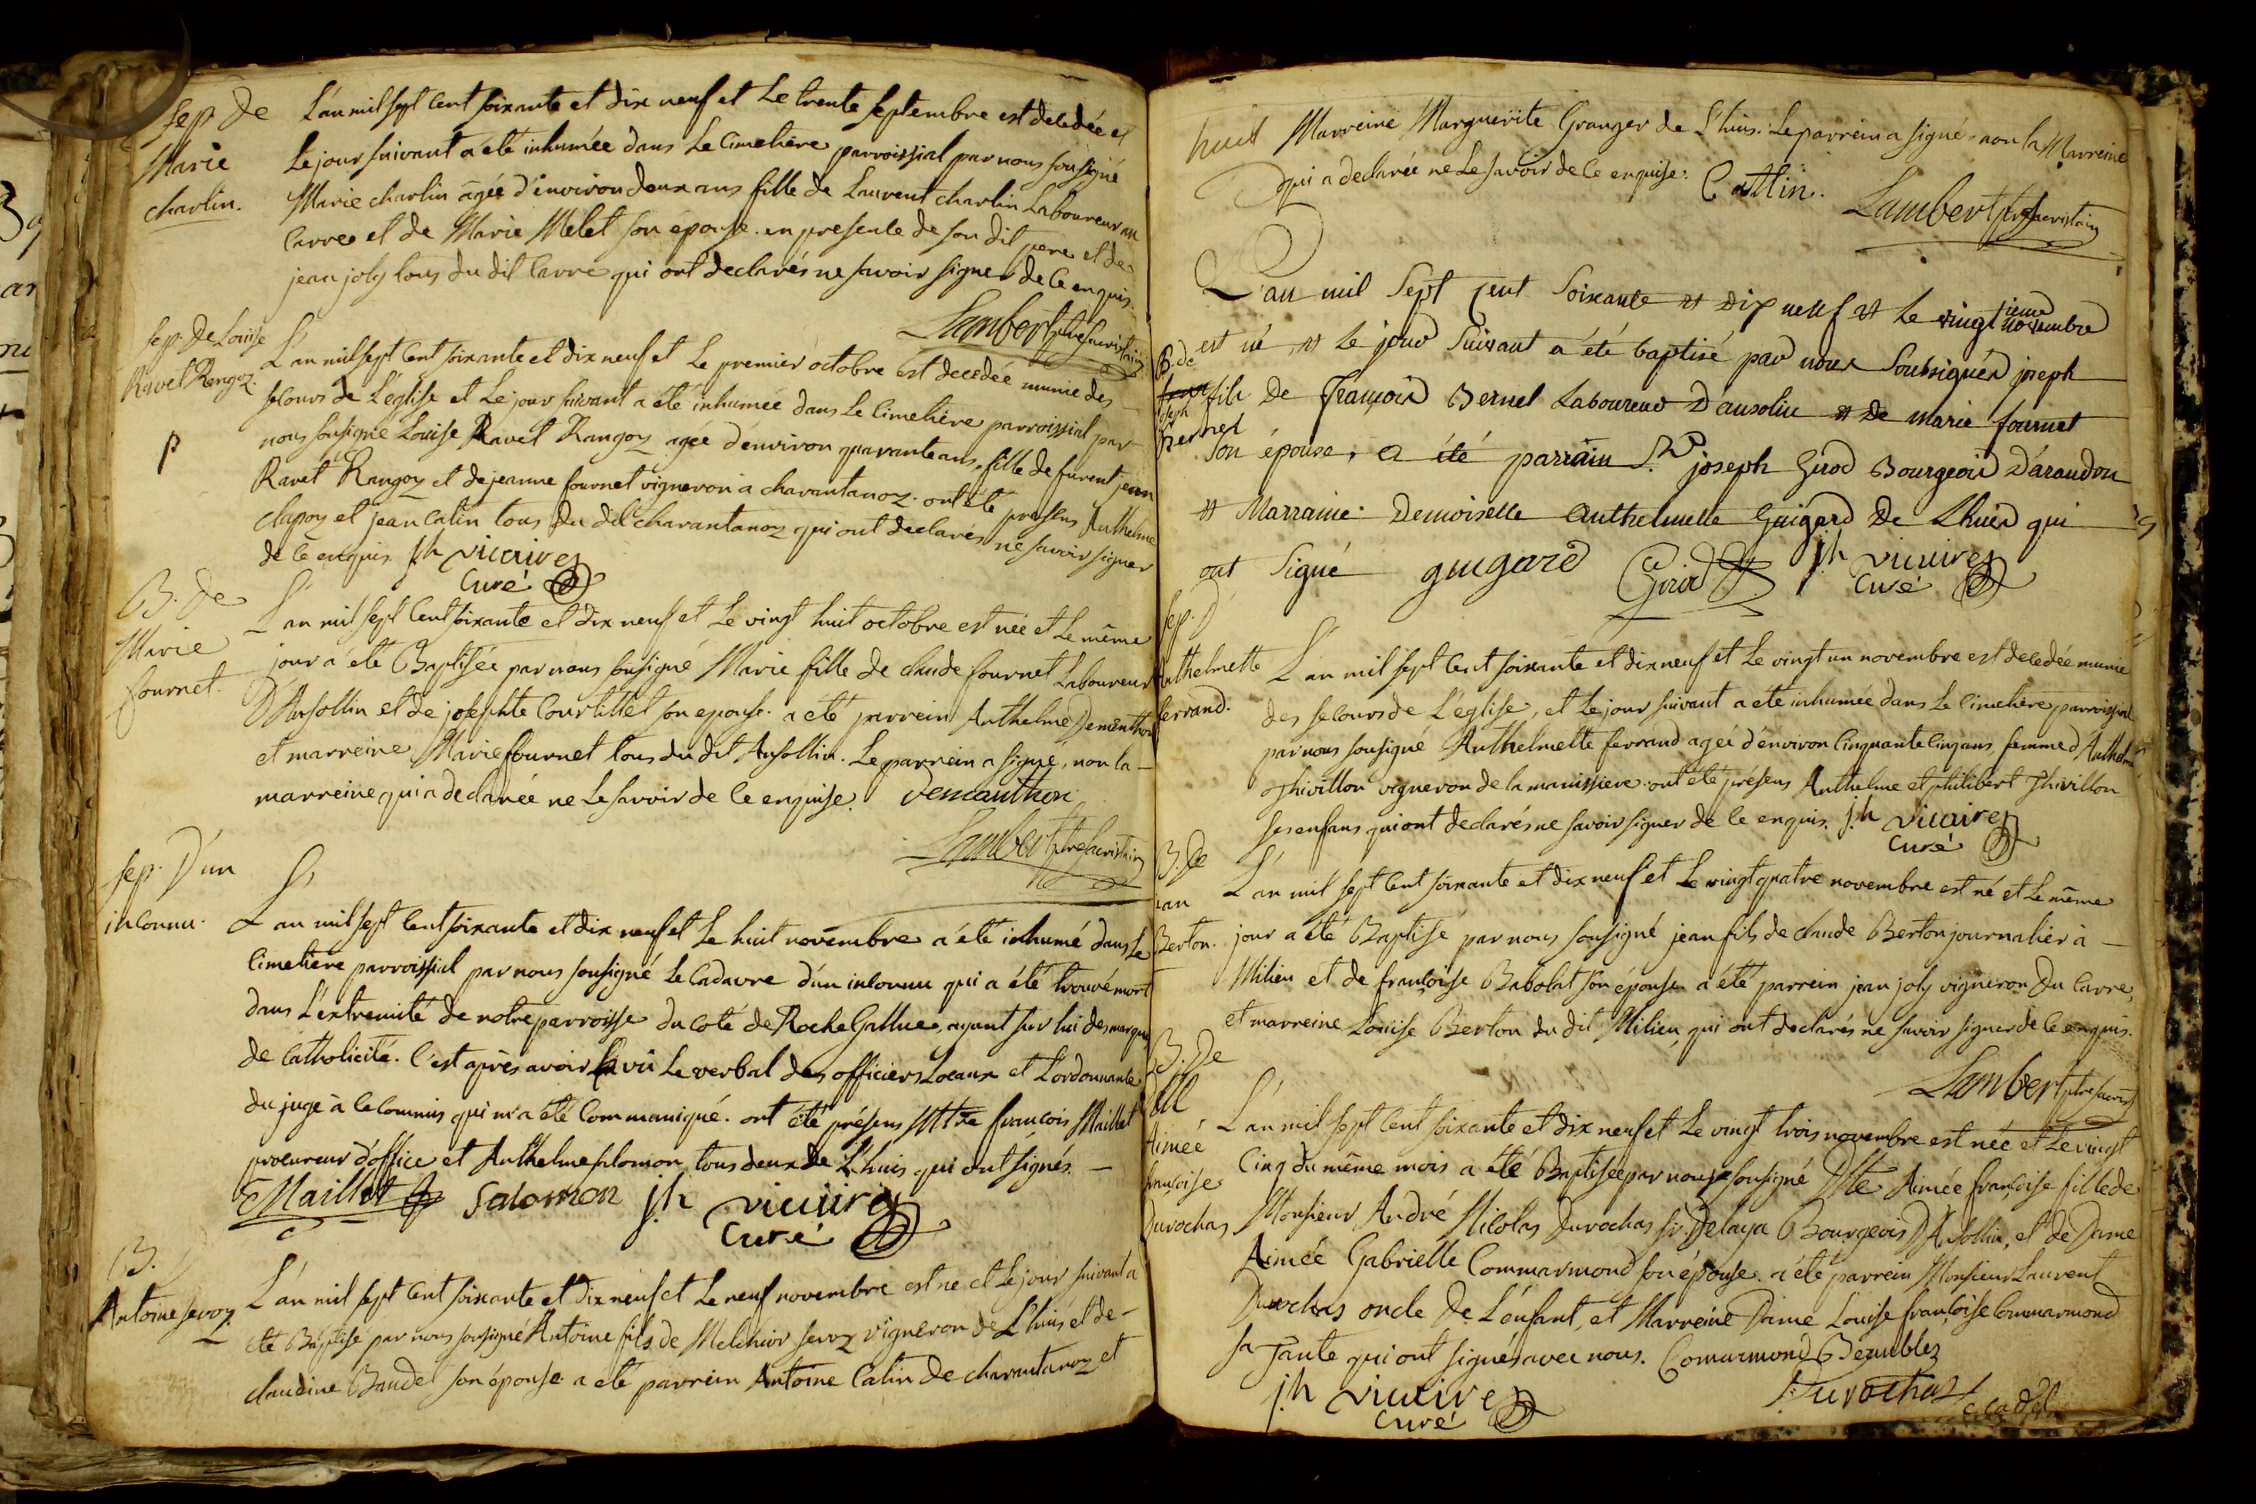 sep. de
Marie
charlin.
L'an mil sept Cent soixante et dix neuf et Le trente septembre est decedée et
Le jour suivant a été inhumée dans Le Cimetière parroissial par nous sousigné
Marie charlin âgée d'environ deux ans fille de Laurent charlin Laboureur au
Carre et de Marie Melet son épouse. en presente de son dit pere et de
jean joly tous du dit Carre qui ont declarés ne savoir signer de Ce enquis.
Lambert ptre sacristain
sep. de Louise
Ravet Rangoz.
p
L'an mil sept Cent soixante et dix neuf et Le premier octobre est decedée munie des
secours de L'église et Le jour suivant a été inhumée dans Le Cimetière parroissial par
nous sousigné Louise Ravet Rangoz agée d'environ quarante ans, fille de furent jean
Ravet Rangoz et de jeanne fournet vigneron a charantanoz. ont été presens Anthelme
clapoy et jean Catin tous du dit charantanoz qui ont declarés ne savoir signer
de Ce enquis. j.h vicaire
Curé
B. de
Marie
fournet.
L'an mil sept Cent soixante et dix neuf et Le vingt huit octobre est née et Le même
jour a été Baptisée par nous sousigné Marie fille de claude fournet Laboureur
D'Ansollin et de josephte Courtillet son epouse. a été parrein Anthelme Dementhon
et marreine Marie fournet tous du dit Ansollin. Le parrein a signé, non la
marreine qui a declarée ne Le savoir de Ce enquise. Demanthon
Lambert ptre sacristain
sep. D'un
inconnu.
L'an mil sept Cent soixante et dix neuf et Le huit novembre a été inhumé dans Le
Cimetière parroissial par nous sousigné Le Cadavre d'un inconnu qui a été trouvé mort
dans L'extremité de notre parroisse du coté de Roche Gallue, ayant sur lui des marques
de Catholicité. C'est après avoir vu Le verbal des officiers Locaux et L'ordonnance
du juge à Ce Commis qui m'a été Communiqué. ont été présens Mtre françois Maillet
procureur d'office et Anthelme solomon tous deux de L'huis qui ont signés.
Maillet Salomon j.h vicaire
Curé
B.
Antoine servoz
L'an mil sept Cent soixante et dix neuf et Le neuf novembre est né et Le jour suivant a
été Baptisé par nous sousigné Antoine fils de Melchior servoz vigneron de L'huis et de
claudine Baudet son épouse. a été parrein Antoine Catin de charantanoz et
huit Marreine Marguerite Granger de L'huis. Le parrein a signé, non la Marreine
qui a declarée ne Le savoir de Ce enquise. Cattin.
Lambert ptre sacristain
B. de
joseph
Bernel
L'an mil Sept Cent Soixante et Dix neuf et le vingtieme novembre
est né, et le jour Suivant a été baptisé par nous Soubsignés joseph
fils de François Bernel Laboureur D'ansolin et de marie fournet
Son épouse, a été parrain Sr. joseph Girod Bourgeois D'arandon
et Marraine Demoiselle Anthelmette Guigard De Lhuis qui
ont Signé guigard Girod j.h vicaire
Curé
sep. D'
Anthelmette
ferrand.
L'an mil sept Cent soixante et dix neuf et Le vingt un novembre est decedée munie
des secours de L'église, et Le jour suivant a été inhumée dans Le Cimetière parroissial
par nous sousigné Anthelmette ferrand agée d'environ Cinquante Cinq ans femme d'Anthelme
Thivillon vigneron de la manissiere. ont été présens Anthelme et philibert Thivillon
ses enfans qui ont declarés ne savoir signer de Ce enquis. j.h vicaire
Curé
B. de
jean
Berton.
L'an mil sept Cent soixante et dix neuf et Le vingt quatre novembre est né et Le même
jour a été Baptisé par nous sousigné jean fils de claude Berton journalier à
Milieu et de françoise Babolat son épouse. a été parrein jean joly vigneron du Carre,
et marreine Louise Berton du dit Milieu, qui ont declarés ne savoir signer de Ce enquis.
Lambert ptre sacris
B. De
Dlle
Aimée
françoise
Durochas
L'an mil sept Cent soixante et dix neuf et Le vingt trois novembre est née et Le vingt
Cinq du même mois a été Baptisée par nous sousigné Dlle Aimée françoise fille de
Monsieur André Nicolas Durochas sr. Delaya Bourgeois D'Ansollin, et de Dame
Aimée Gabrielle Commarmond son épouse. a été parrein Monsieur Laurent
Durochas oncle De L'enfant, et Marreine Dame Louise françoise Commarmond
sa Tante qui ont signés avec nous. Comarmond Beaublez
j.h vicaire Durochas
Curé